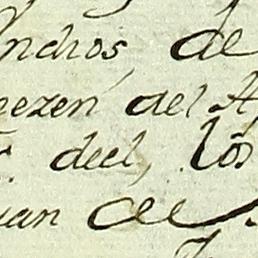 nchos, de
nezen del A
decl, los
uan de